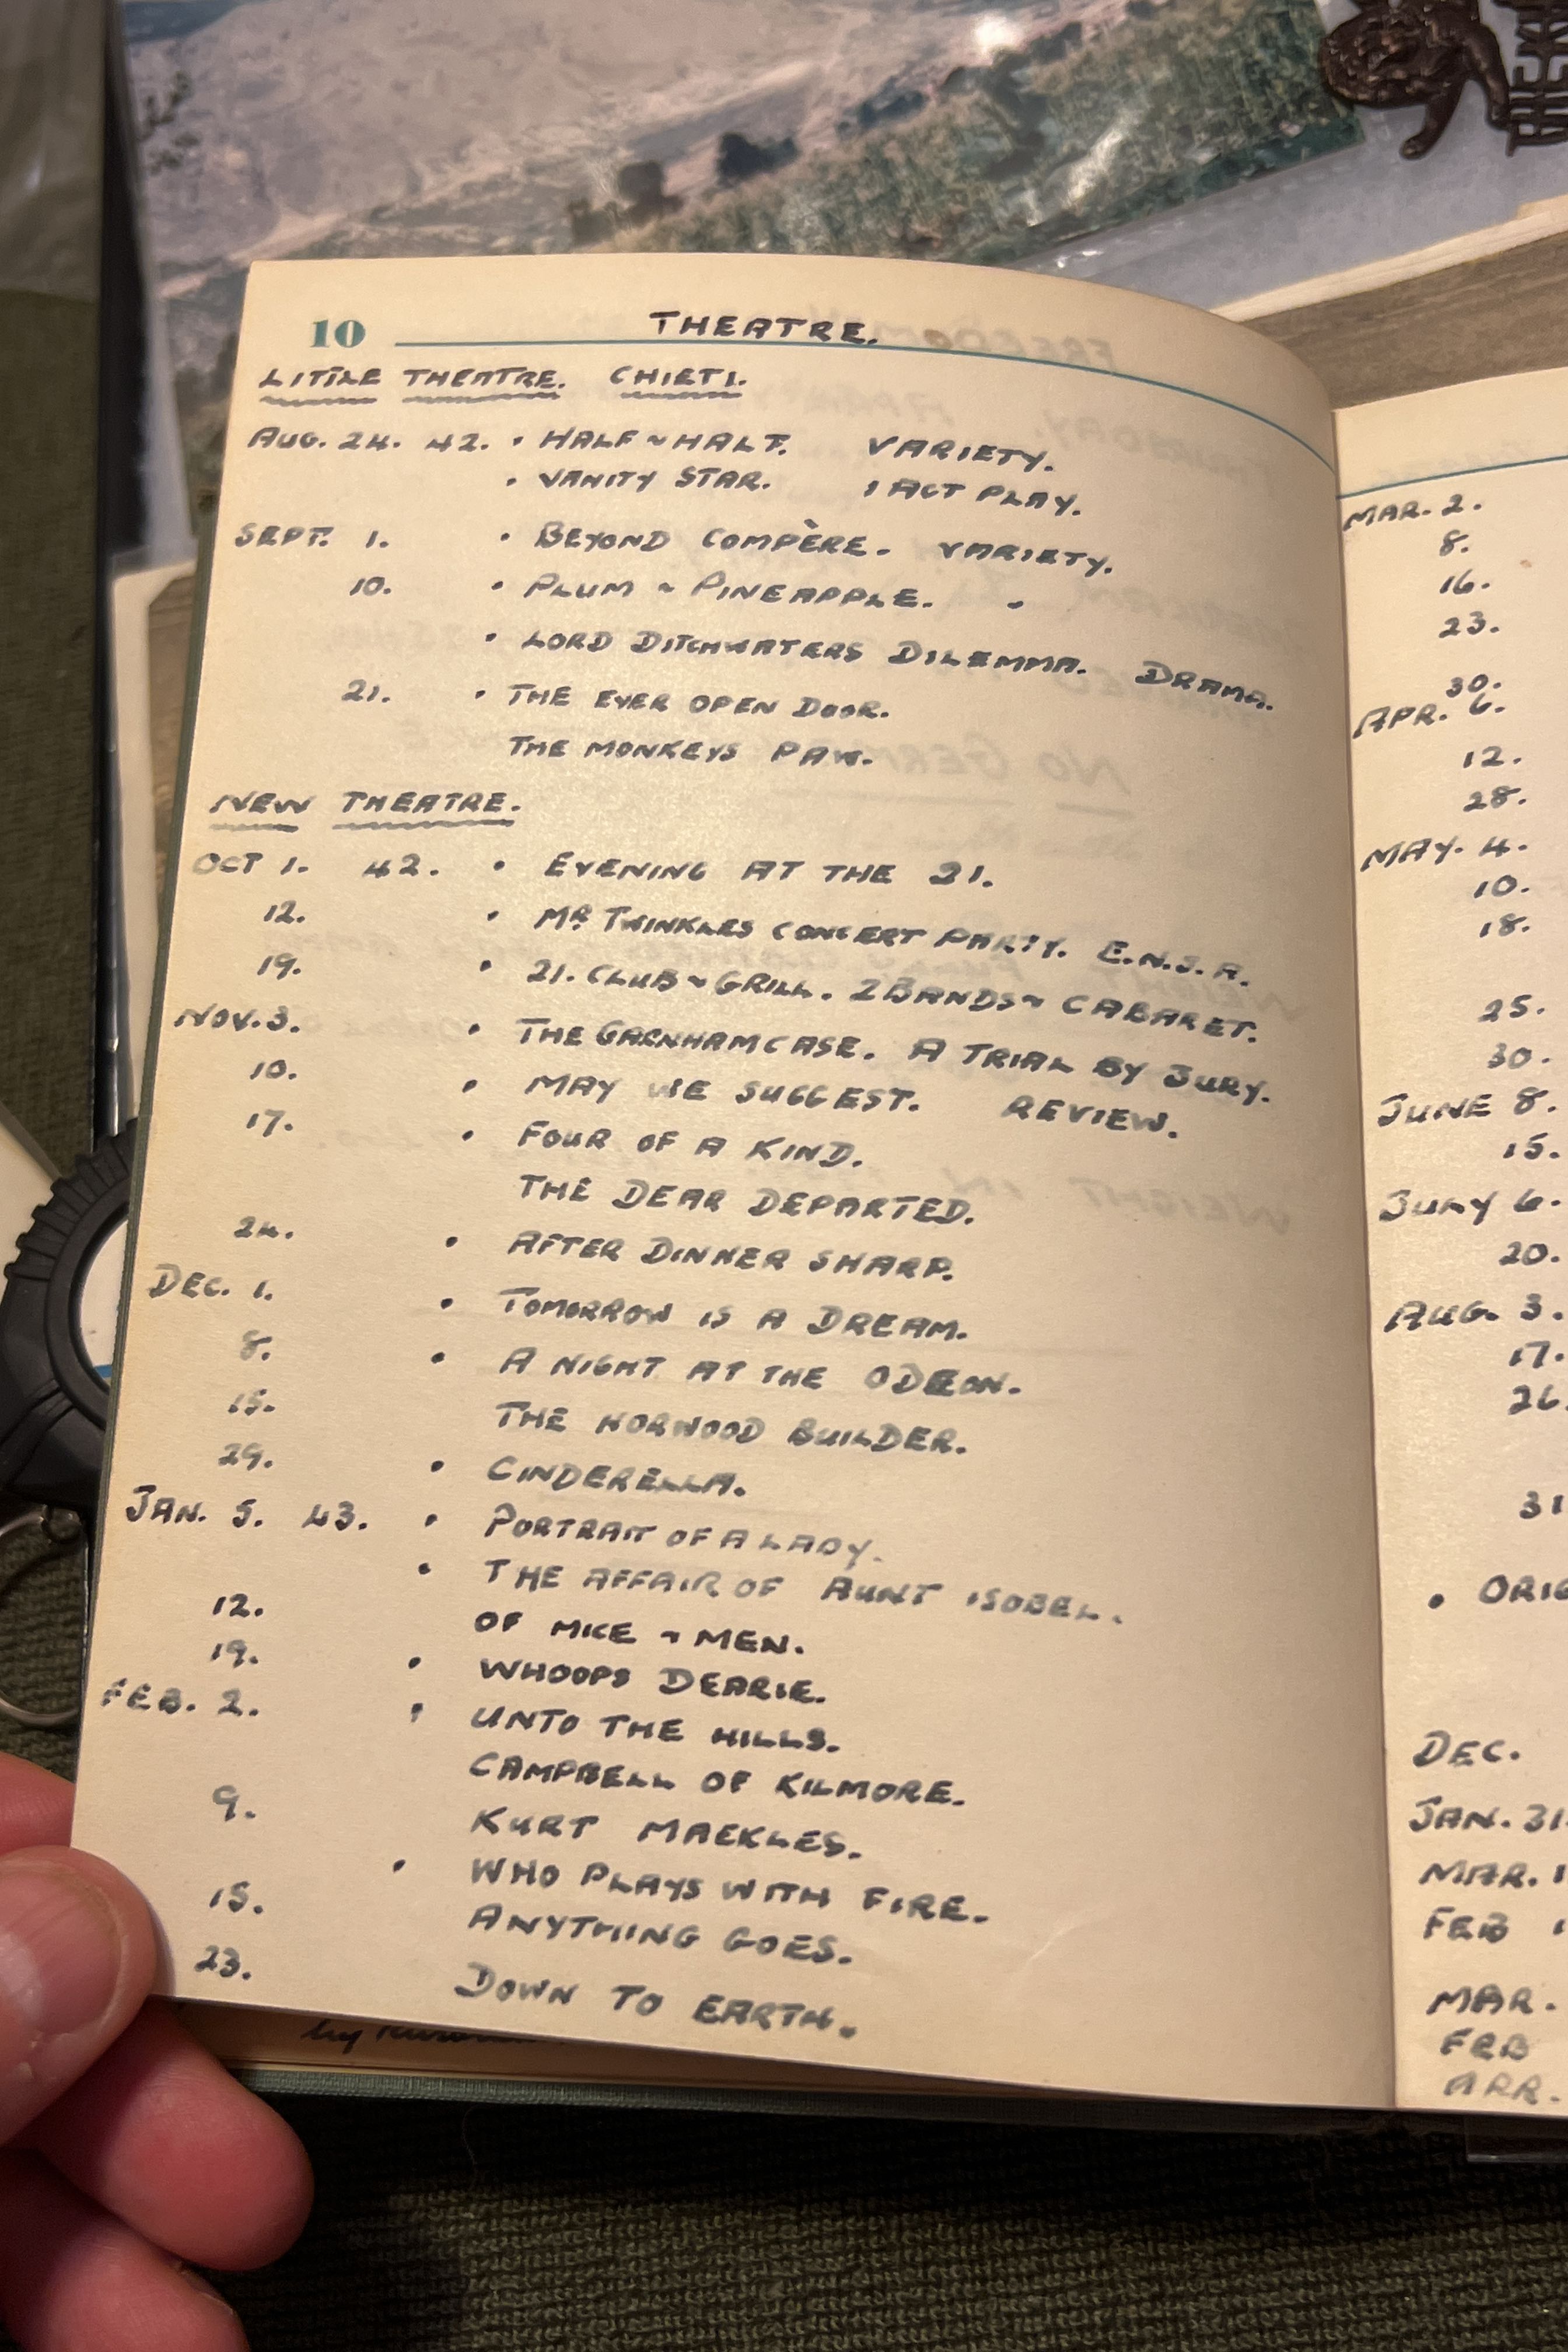 10 THEATRE.
LITTLE THEATRE. CHIETI.
AUG. 24. 42. • HALF ~ HALF. VARIETY.
• VANITY STAR. 1 ACT PLAY.
SEPT. 1. • BEYOND COMPÈRE. VARIETY.
10. • PLUM ~ PINEAPPLE. "
• LORD DITCHWATERS DILEMMA. DRAMA.
21. • THE EVER OPEN DOOR.
THE MONKEYS PAW.
NEW THEATRE.
OCT 1. 42. • EVENING AT THE 21.
12. • MR. TWINKLES CONCERT PARTY. E.N.S.A.
19. • 21. CLUB ~ GRILL. 2 BANDS ~ CABARET.
NOV. 3. • THE GARNHAM CASE. A TRIAL BY JURY.
10. • MAY WE SUGGEST. REVIEW.
17. • FOUR OF A KIND.
THE DEAR DEPARTED.
24. • AFTER DINNER SHARP.
DEC. 1. • TOMORROW IS A DREAM.
8. • A NIGHT AT THE ODEON.
15. THE NORWOOD BUILDER.
29. • CINDERELLA.
JAN. 5. 43. • PORTRAIT OF A LADY.
• THE AFFAIR OF AUNT ISOBEL.
12. OF MICE ~ MEN.
19. • WHOOPS DEARIE.
FEB. 2. • UNTO THE HILLS.
CAMPBELL OF KILMORE.
9. KURT MAEKLES.
• WHO PLAYS WITH FIRE.
15. ANYTHING GOES.
23. DOWN TO EARTH.
MAR. 2.
8.
16.
23.
30.
APR. 6.
12.
28.
MAY. 4.
10.
18.
25.
30.
JUNE 8.
15.
JULY 6.
20.
AUG. 3.
17.
26.
31
• ORIG
DEC.
JAN. 31.
MAR. 1
FEB 1
MAR.
FEB
ARR.